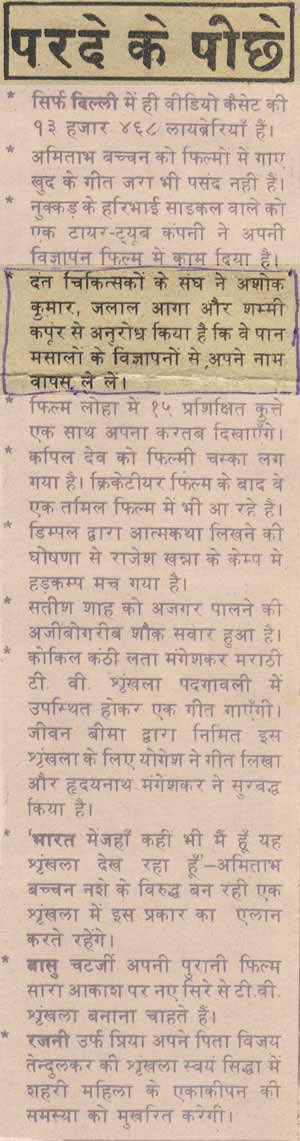 परदे के पीछे
* सिर्फ बिल्ली में ही वीडियो कैसेट की
१३ हजार ४६८ लायब्रेरियाँ हैं।
* अमिताभ बच्चन को फिल्मों में गाए
खुद के गीत जरा भी पसंद नहीं है।
* नुक्कड़ के हरिभाई साइकल वाले को
एक टायर-ट्यूब कंपनी ने अपनी
विज्ञापन फिल्म में काम दिया है।
* दंत चिकित्सकों के संघ ने अशोक
कुमार, जलाल आगा और शम्मी
कपूर से अनुरोध किया है कि वे पान
मसालों के विज्ञापनों से अपने नाम
वापस ले लें।
* फिल्म लोहा में १५ प्रशिक्षित कुत्ते
एक साथ अपना करतब दिखाएँगे।
* कपिल देव को फिल्मी चस्का लग
गया है। क्रिकेटीयर फिल्म के बाद वे
एक तमिल फिल्म में भी आ रहे हैं।
* डिम्पल द्वारा आत्मकथा लिखने की
घोषणा से राजेश खन्ना के केम्प में
हड़कम्प मच गया है।
* सतीश शाह को अजगर पालने की
अजीबोगरीब शौक सवार हुआ है।
* कोकिल कंठी लता मंगेशकर मराठी
टी. वी. शृंखला पदगावली में
उपस्थित होकर एक गीत गाएँगी।
जीवन बीमा द्वारा निमित इस
शृंखला के लिए योगेश ने गीत लिखा
और हृदयनाथ मंगेशकर ने सुरबद्ध
किया है।
* 'भारत मेंजहाँ कहीं भी मैं हूँ यह
शृंखला देख रहा हूँ'–अमिताभ
बच्चन नशे के विरुद्ध बन रही एक
शृंखला में इस प्रकार का एलान
करते रहेंगे।
* बासु चटर्जी अपनी पुरानी फिल्म
सारा आकाश पर नए सिरे से टी.वी.
शृंखला बनाना चाहते हैं।
* रजनी उर्फ प्रिया अपने पिता विजय
तेन्दुलकर की शृंखला स्वयं सिद्धा में
शहरी महिला के एकाकीपन की
समस्या को मुखरित करेगी।